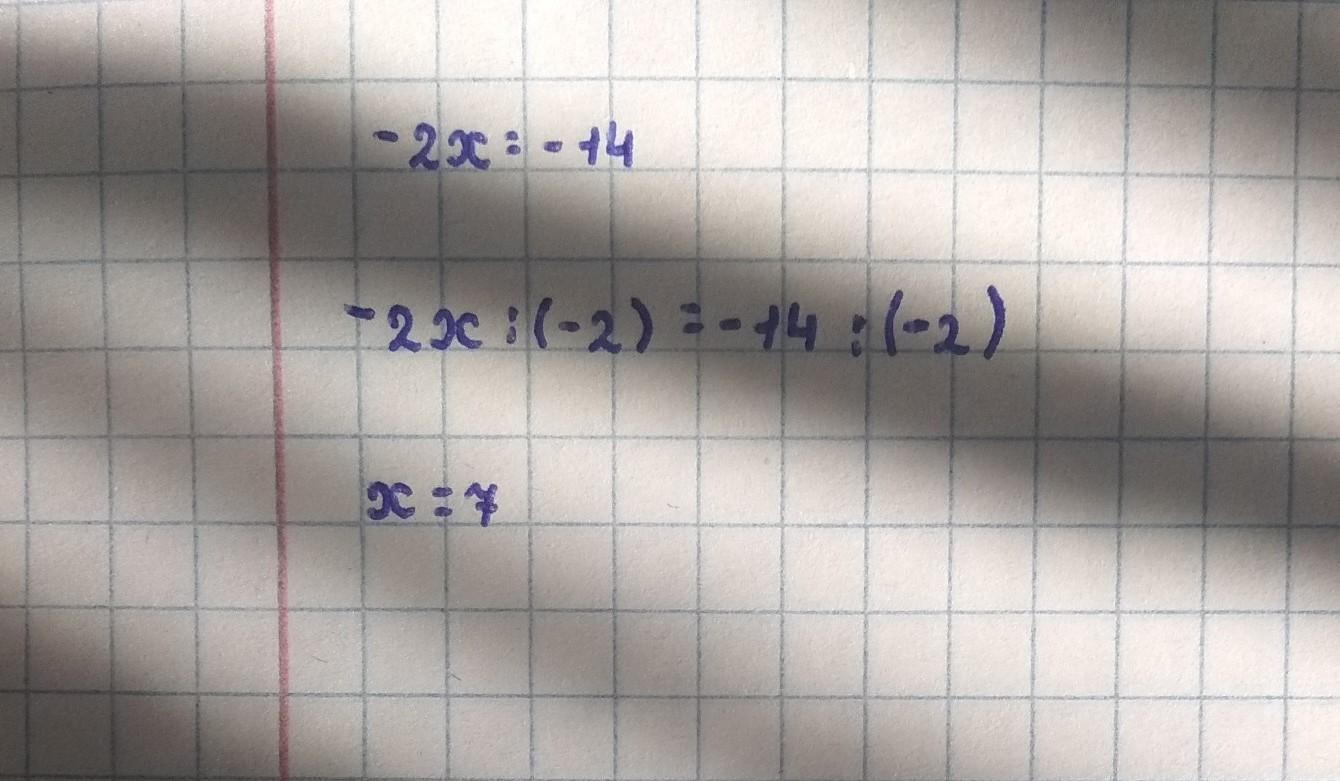 -2x=-14
-2x:(-2)=-14:(-2)
x=7